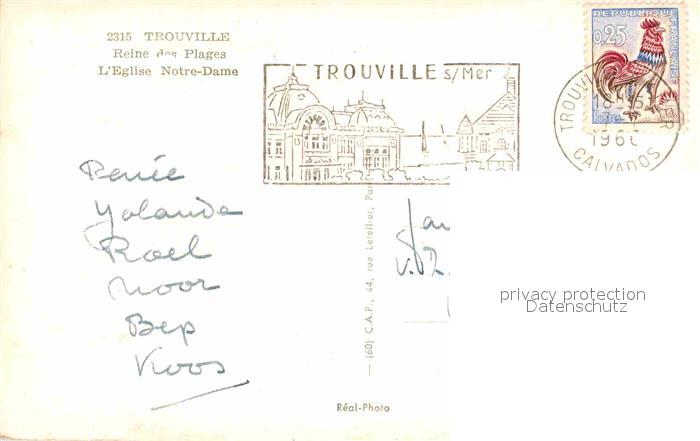 2315 TROUVILLE
Reine des Plages
L'Eglise Notre-Dame
TROUVILLE s/Mer
REPUBLIQUE FRANÇAISE
0,25
POSTES
TROUVILLE
CALVADOS
Renée
Yolanda
Roel
Noor
Bep
Koos
(60) C.A.P., 44, rue Letellier,
privacy protection
Datenschutz
Réal-Photo